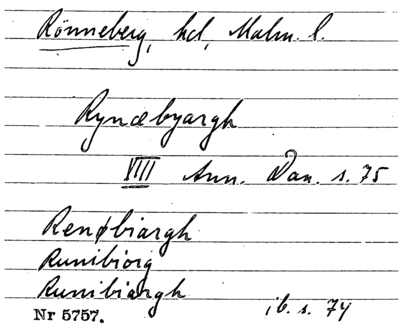 Rönneberg, hd, Malm. l.
Rynæbyargh
VIII Ann. Dan. s. 75
Renøbiargh
Runibiorg
Runibiærgh
ib. s. 74
Nr 5757.